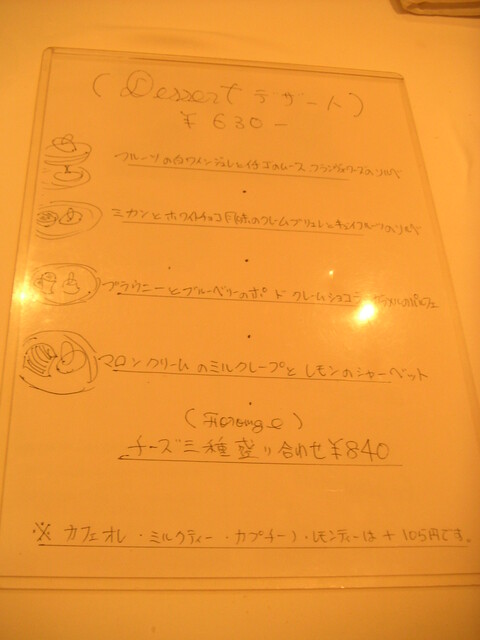 (Dessert デザート)
¥630-
フルーツの白ワインジュレとイチゴのムース フランボワーズのソルベ
ミカンとホワイトチョコ風味のクレームブリュレとキュイフルーツのソルベ
ブラウニーとブルーベリーのポ ド クレームショコラ のパルフェ
マロンクリームのミルクレープとレモンのシャーベット
(Fromage)
チーズ三種盛り合わせ ¥840
※ カフェオレ・ミルクティー・カプチーノ・レモンティーは+105円です。